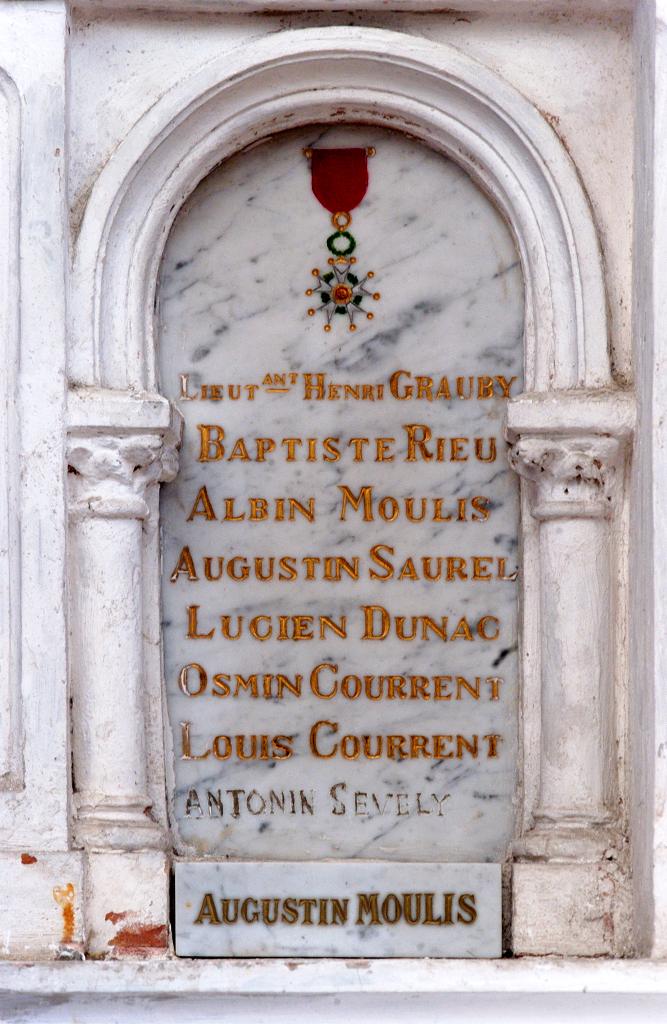 LIEUTANT HENRI GRAUBY
BAPTISTE RIEU
ALBIN MOULIS
AUGUSTIN SAUREL
LUCIEN DUNAC
OSMIN COURRENT
LOUIS COURRENT
ANTONIN SEVELY
AUGUSTIN MOULIS